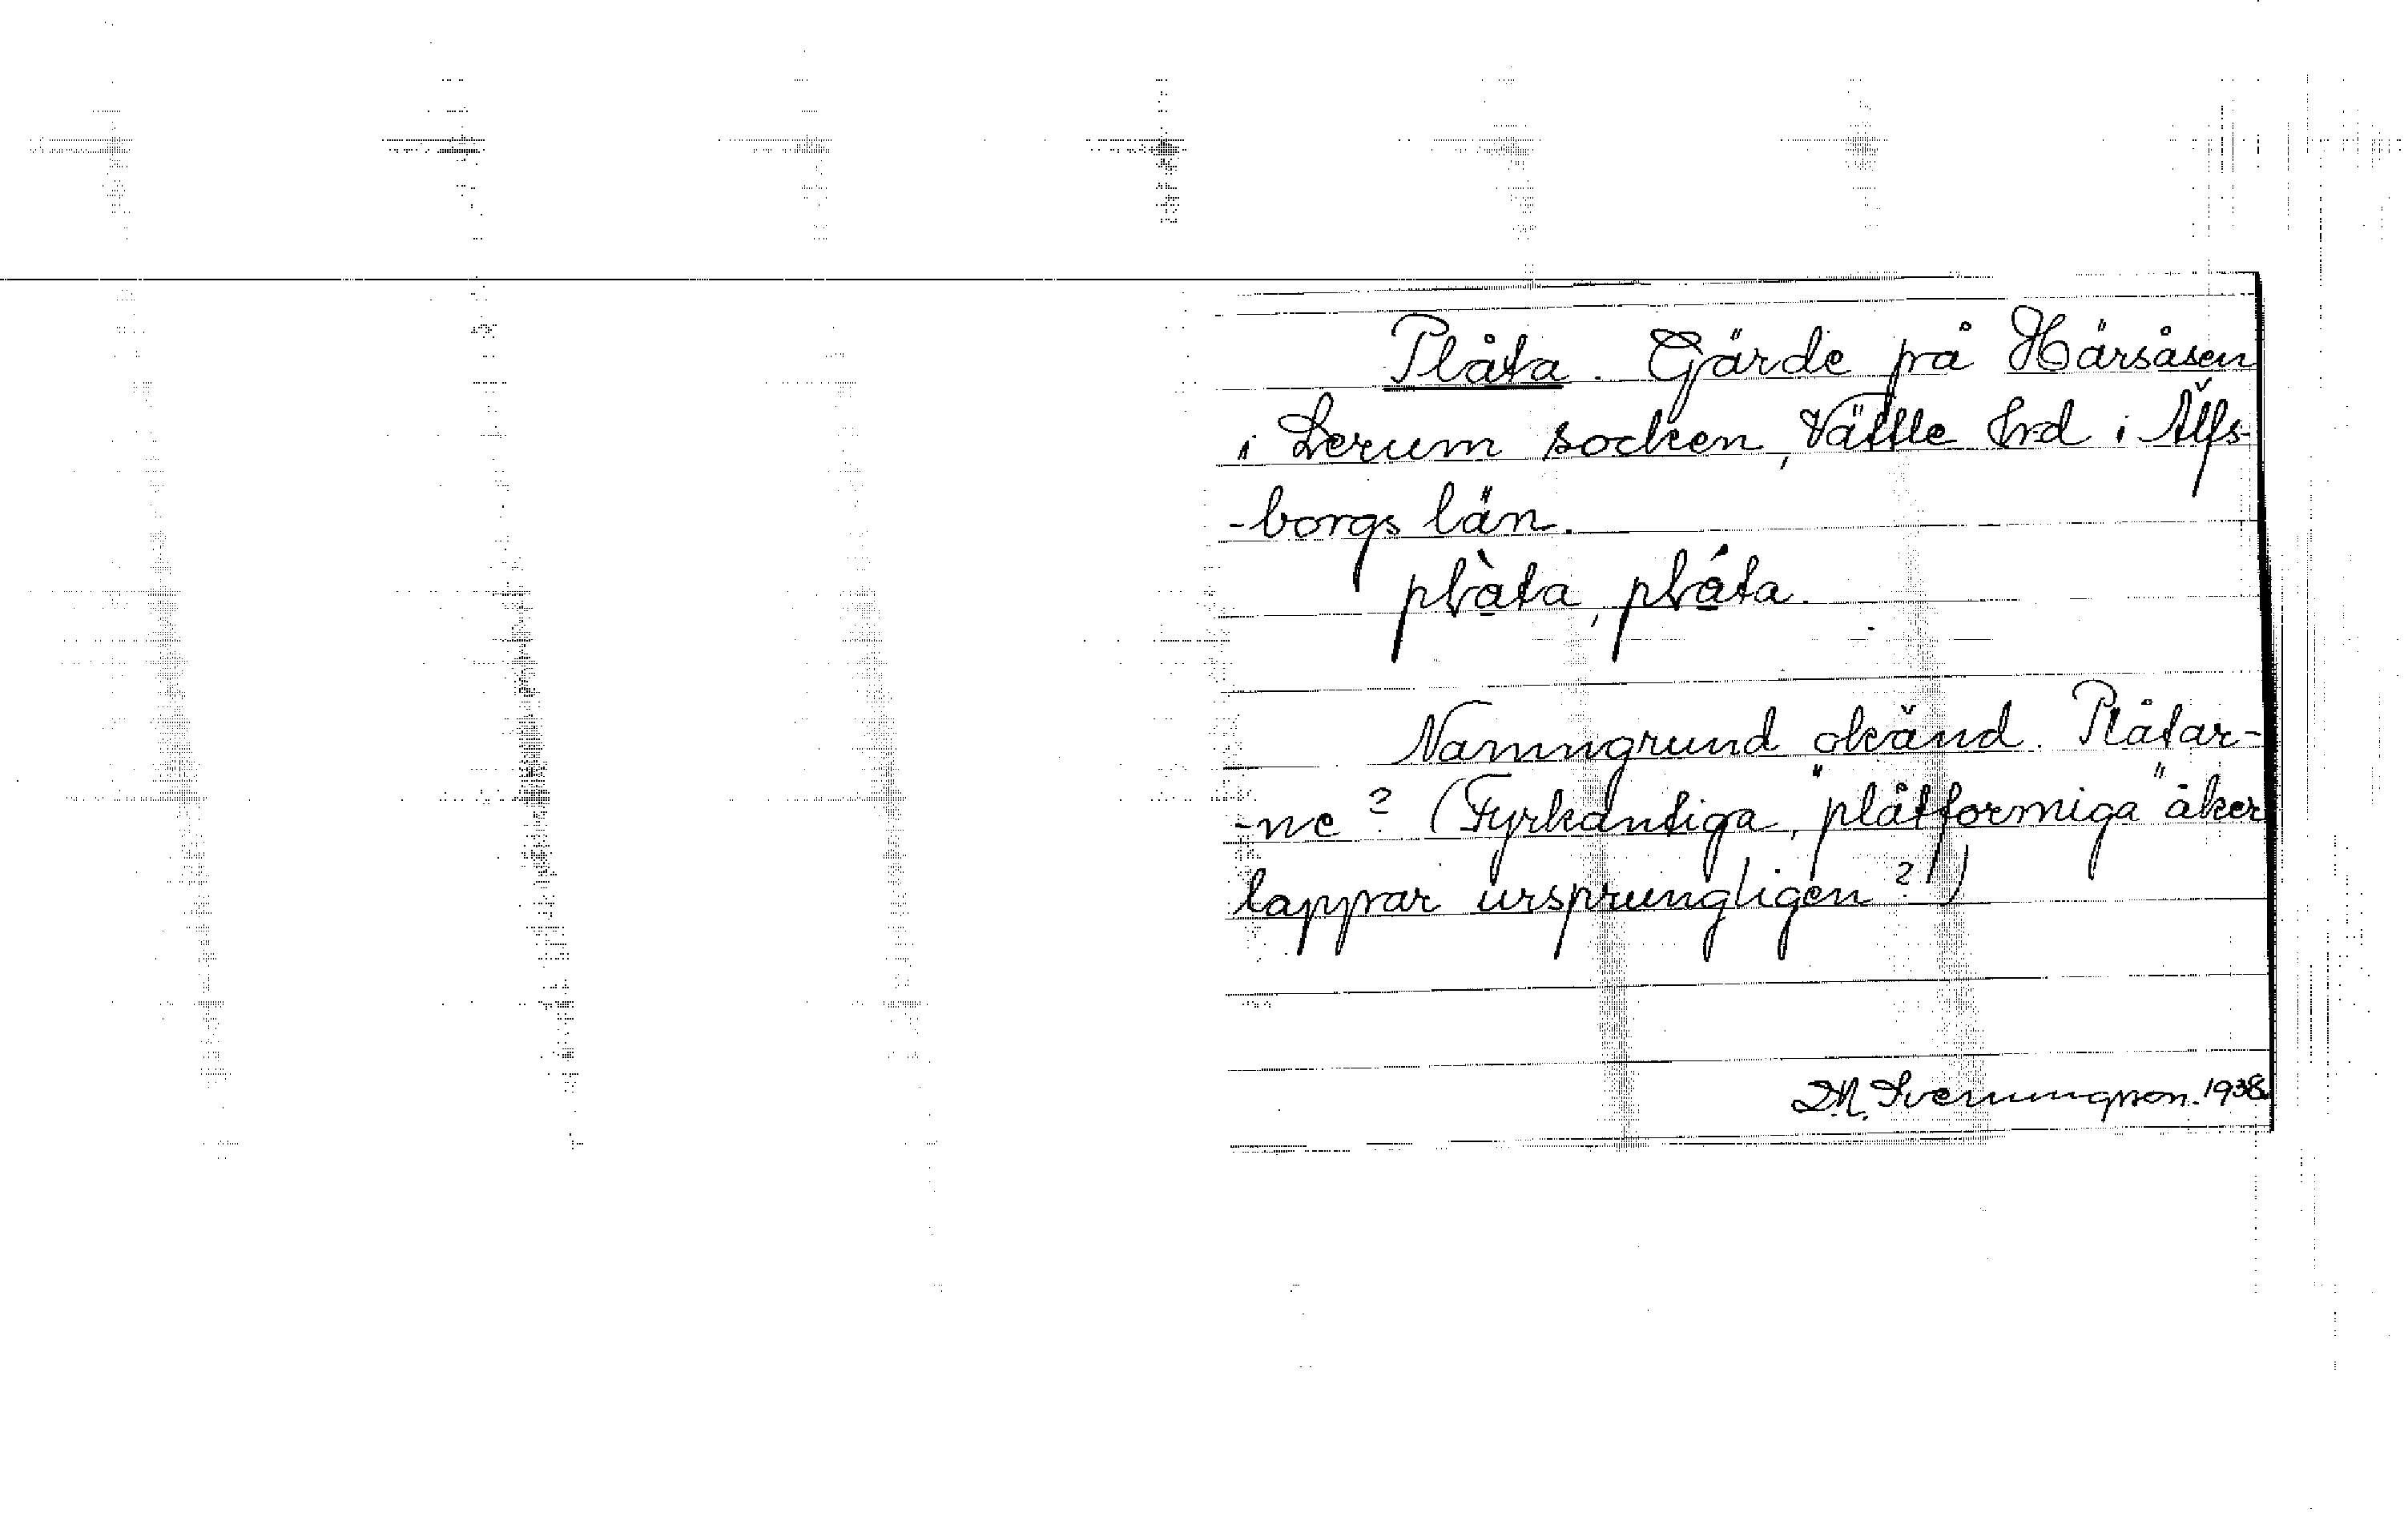 Plåta. Gärde på Härsåsen
i Lerum socken, Vättle hrd i Älfs-
-borgs län.
plàta, pláta.
Namngrund okänd. Plåtar-
-ne? (Fyrkantiga, "plåtformiga" åker
lappar ursprungligen?)
D.N. Svenningson. 1938.